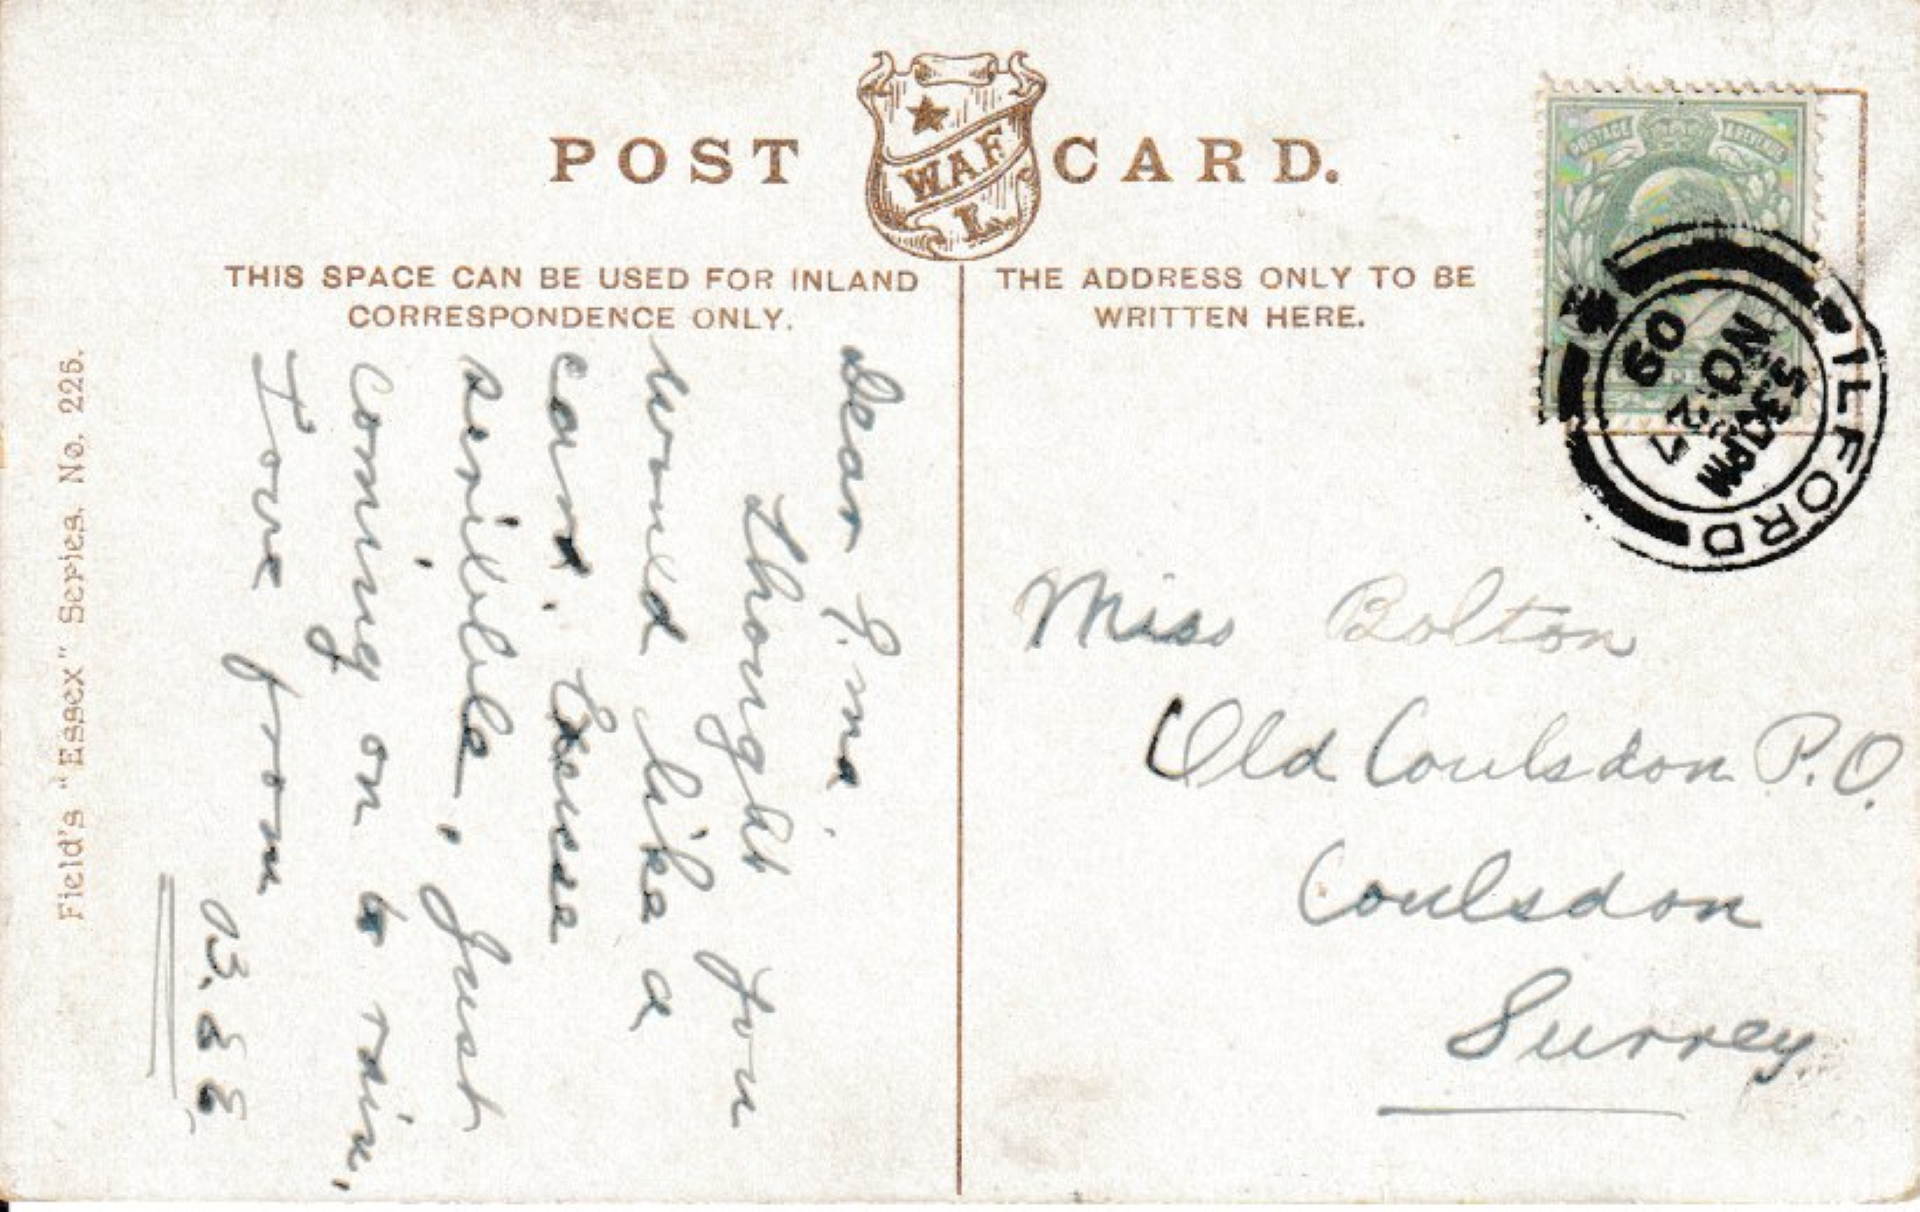 POST CARD.
W.A.F
L.
THIS SPACE CAN BE USED FOR INLAND
CORRESPONDENCE ONLY.
THE ADDRESS ONLY TO BE
WRITTEN HERE.
POSTAGE & REVENUE
ILFORD
5 30 PM
NO 27
09
Field's "Essex" Series. No. 225.
Dear
Thought you
would like a
card. Excuse
scribble, Just
coming on to rain.
Love from
Miss Bolton
Old Coulsdon P.O.
Coulsdon
Surrey